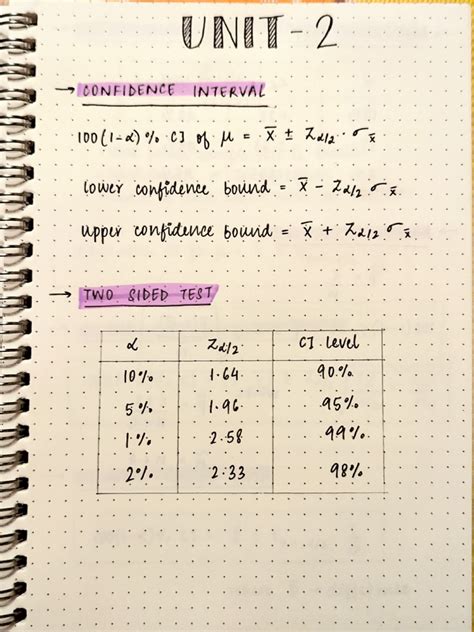 UNIT-2
→ CONFIDENCE INTERVAL
100(1-α)% CI of μ = x̄ ± Zα/2 · σx̄
lower confidence bound = x̄ - Zα/2 σx̄
upper confidence bound = x̄ + Zα/2 σx̄
→ TWO SIDED TEST
α Zα/2 CI level
10% 1.64 90%
5% 1.96 95%
1% 2.58 99%
2% 2.33 98%